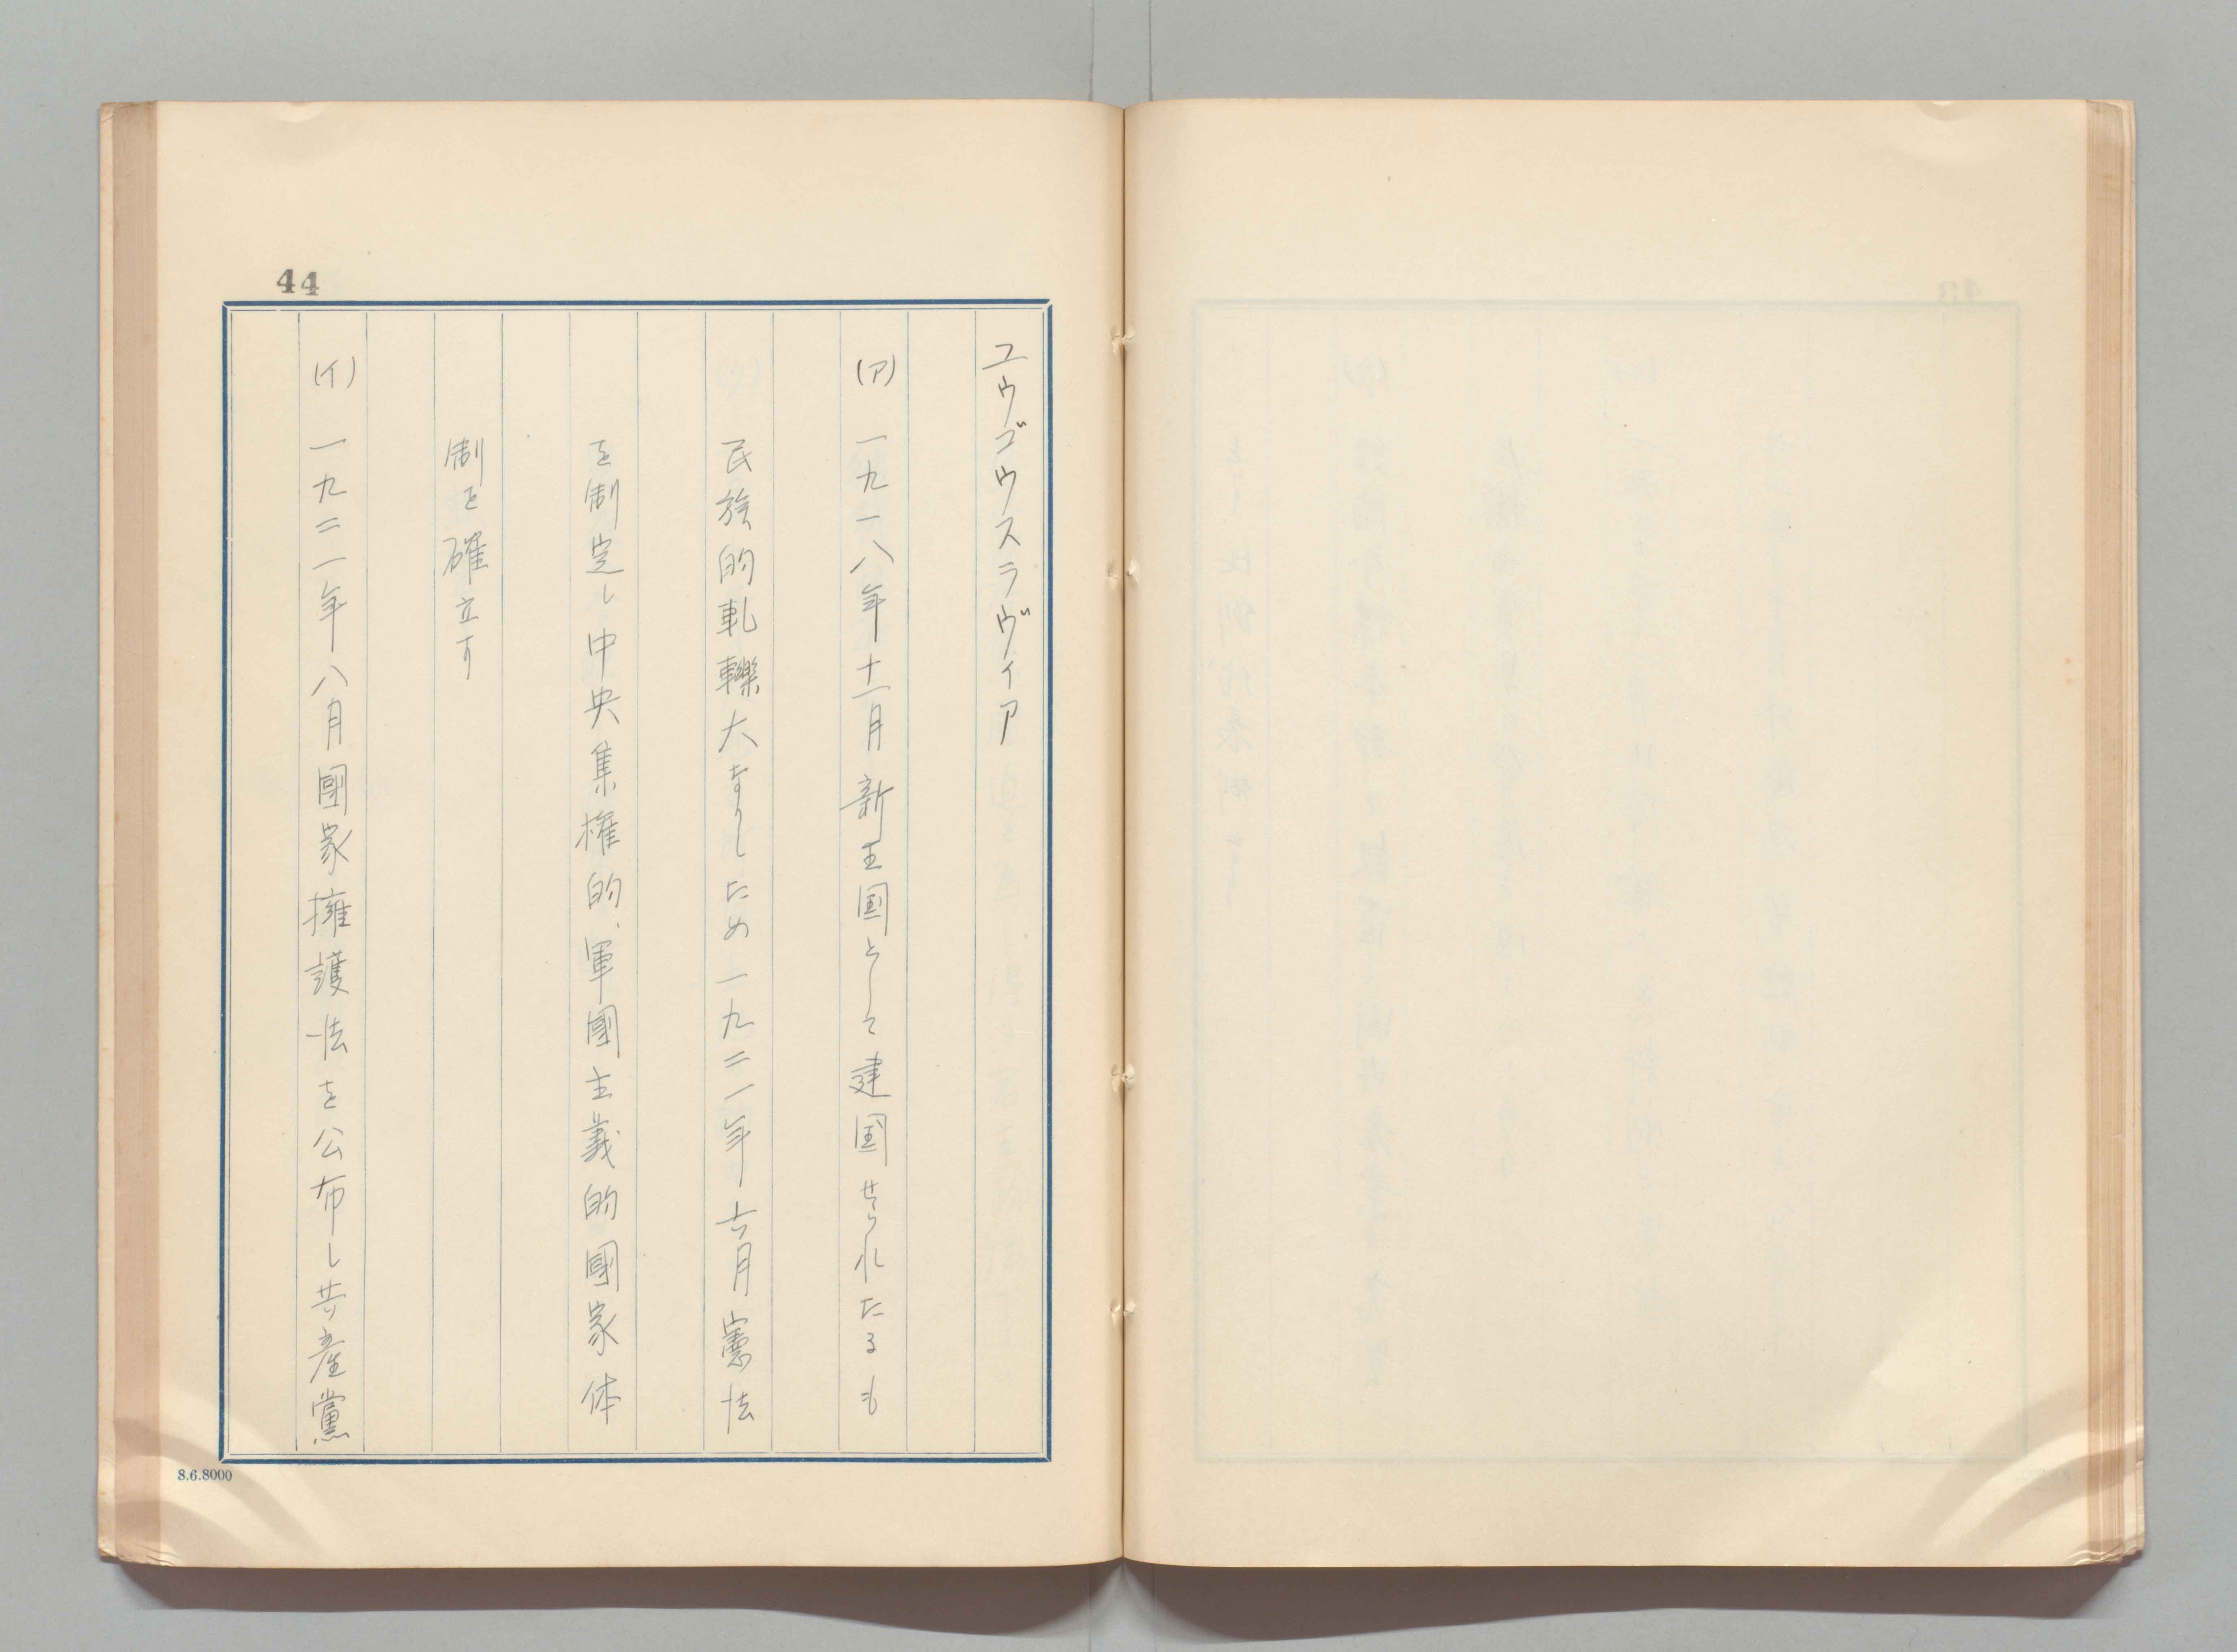 44
ユウゴウスラヴィア
(ア) 一九一八年十二月新王国として建国せられたるも
民族的軋轢大なりしため一九二一年六月憲法
を制定し中央集権的、軍團主義的國家体
制を確立す
(イ) 一九二一年八月國家擁護法を公布し共産黨
8.6.8000